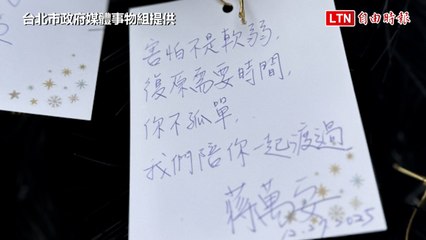 台北市政府媒體事物組提供
LTN 自由時報
害怕不是軟弱,
復原需要時間,
你不孤單,
我們陪你一起渡過
蔣萬安
12.27.2025